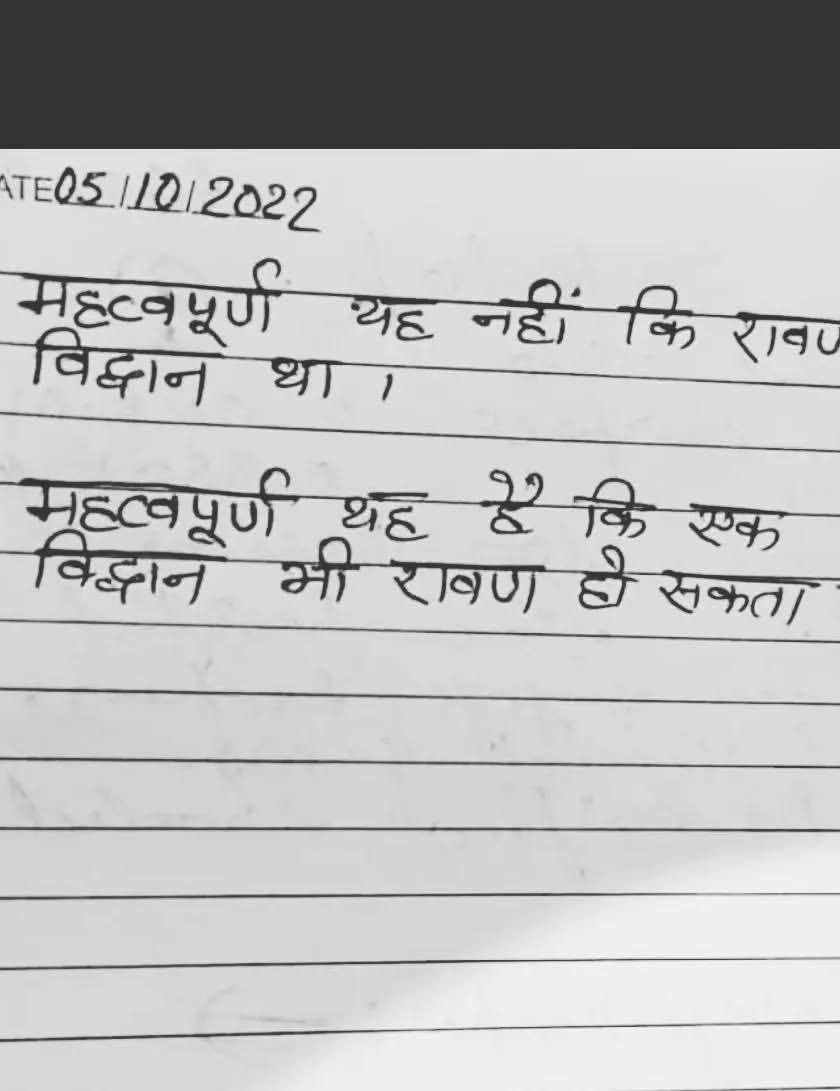 ATE 05/10/2022
महत्वपूर्ण यह नहीं कि रावण
विद्वान था ।
महत्वपूर्ण यह है कि एक
विद्वान भी रावण हो सकता